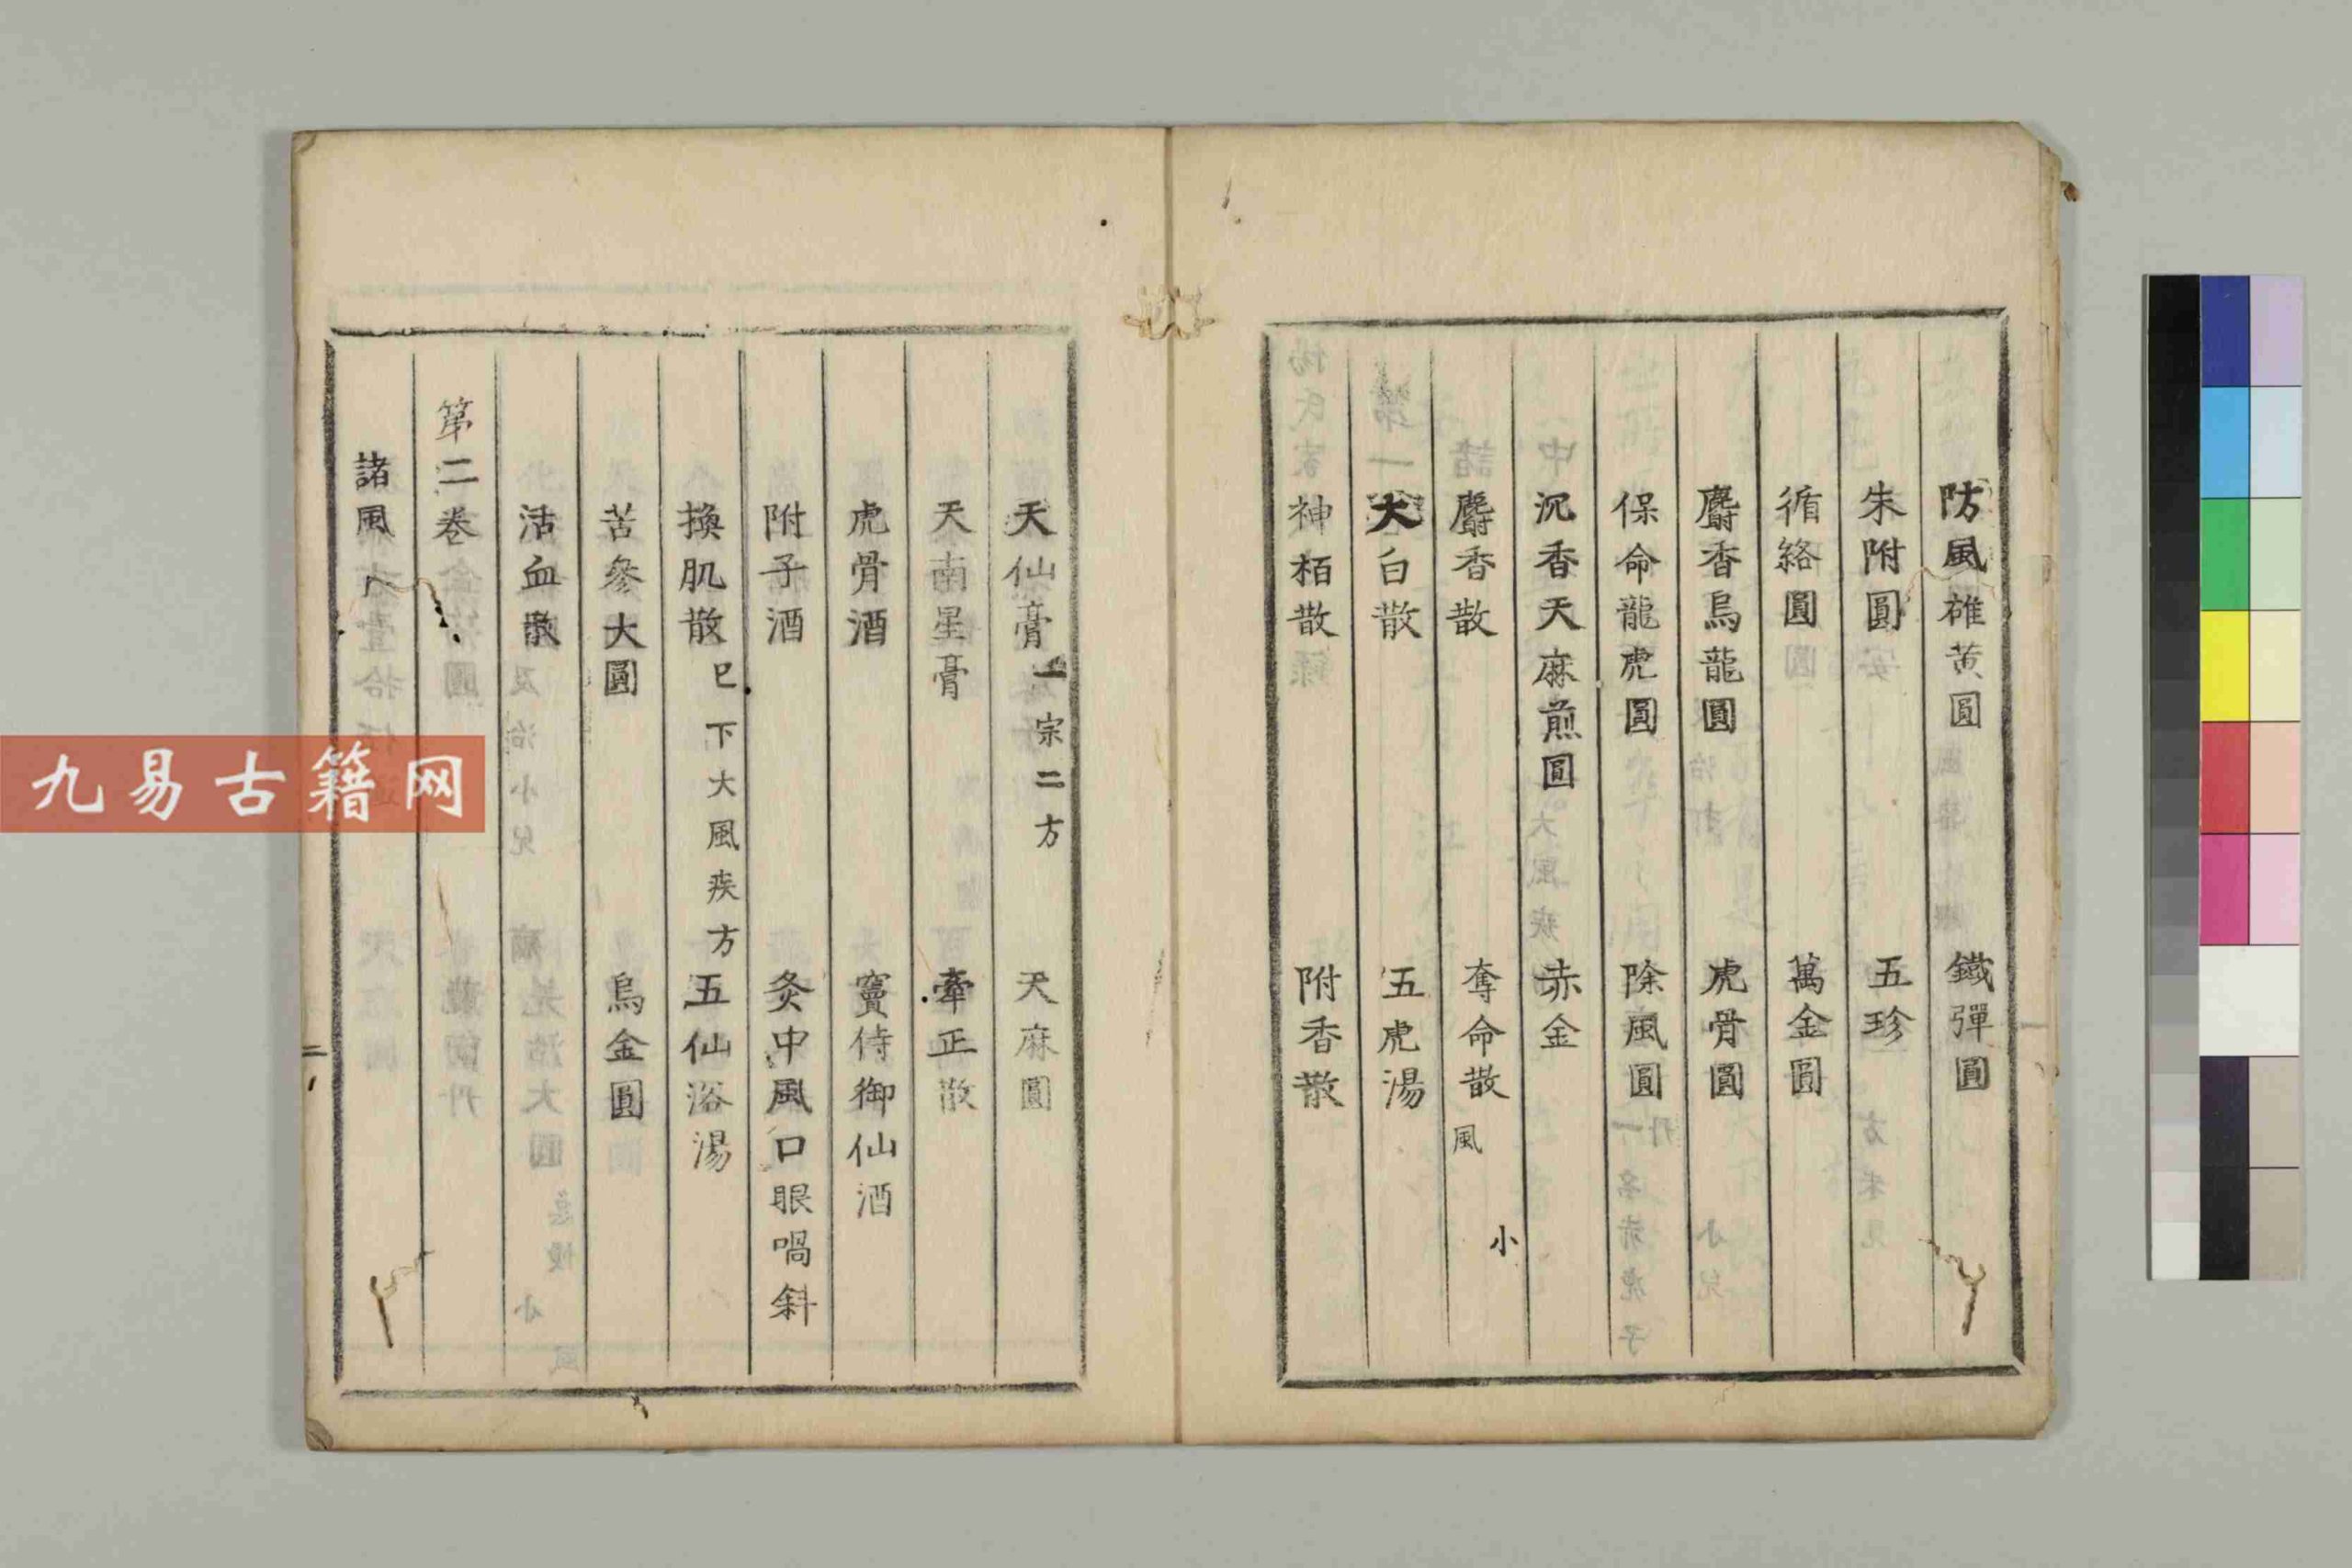 防風雄黄圓　鐵彈圓
朱附圓　五珍
循絡圓　萬金圓
麝香烏龍圓　虎骨圓
保命龍虎圓　除風圓
沉香天麻煎圓　赤金
麝香散　奪命散　風　小
大白散　五虎湯
神栢散　附香散
天仙膏一宗二方　天麻圓
天南星膏　牽正散
虎骨酒　竇侍御仙酒
附子酒　灸中風口眼喎斜
換肌散已下大風疾方　五仙浴湯
苦參大圓　烏金圓
活血散
第二卷
諸風
二
九易古籍网